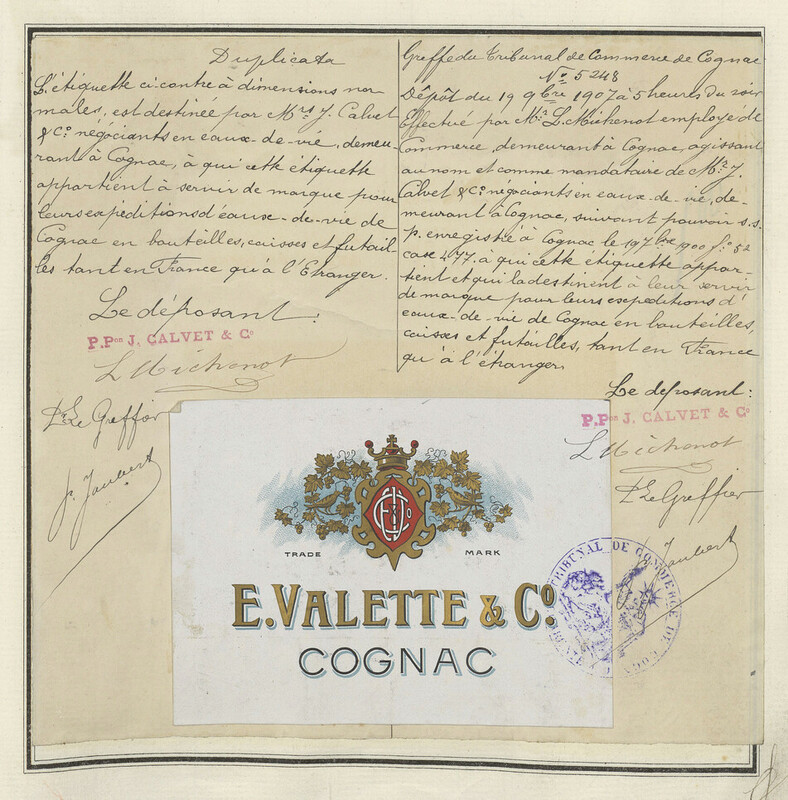 Duplicata
L'étiquette ci-contre à dimensions nor
males, est destinée par Mrs J. Calvet
& Co négociants en eaux-de-vie, demeu-
rant à Cognac, à qui cette étiquette
appartient à servir de marque pour
leurs expéditions d'eaux-de-vie de
Cognac en bouteilles, caisses et futail-
les tant en France qu'à l'Etranger.
Le déposant:
P.Pon J. CALVET & Co
L Michenot
Pr Le Greffier
J. Jaubert
Greffe du Tribunal de Commerce de Cognac
No 5248
Dépôt du 19 9bre 1907 à 5 heures du soir
Effectué par Mr L. Michenot employé de
Commerce, demeurant à Cognac, agissant
au nom et comme mandataire de Mrs J.
Calvet & Co négociants en eaux-de-vie, de-
meurant à Cognac, suivant pouvoir s.s.
p. enregistré à Cognac le 19 7bre 1900 fo 52
case 477. à qui cette étiquette appar-
tient et qui la destinent à leur servir
de marque pour leurs expéditions d'
eaux-de-vie de Cognac en bouteilles,
caisses et futailles, tant en France
qu'à l'étranger.
Le déposant:
P.Pon J. CALVET & Co
L Michenot
Pr Le Greffier
Jaubert
TRADE MARK
E. VALETTE & Co.
COGNAC
TRIBUNAL DE COMMERCE DE COGNAC